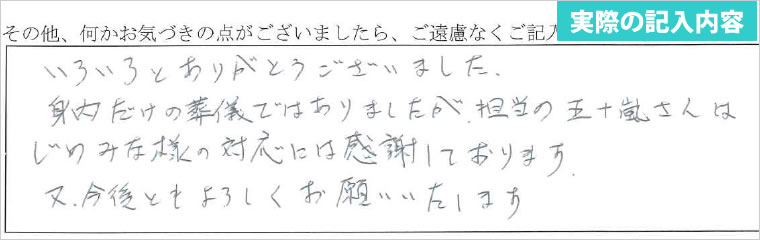 その他、何かお気づきの点がございましたら、ご遠慮なくご記入
実際の記入内容
いろいろとありがとうございました.
身内だけの葬儀ではありましたが、担当の五十嵐さんは
じめみな様の対応には感謝しております.
又、今後ともよろしくお願いいたします